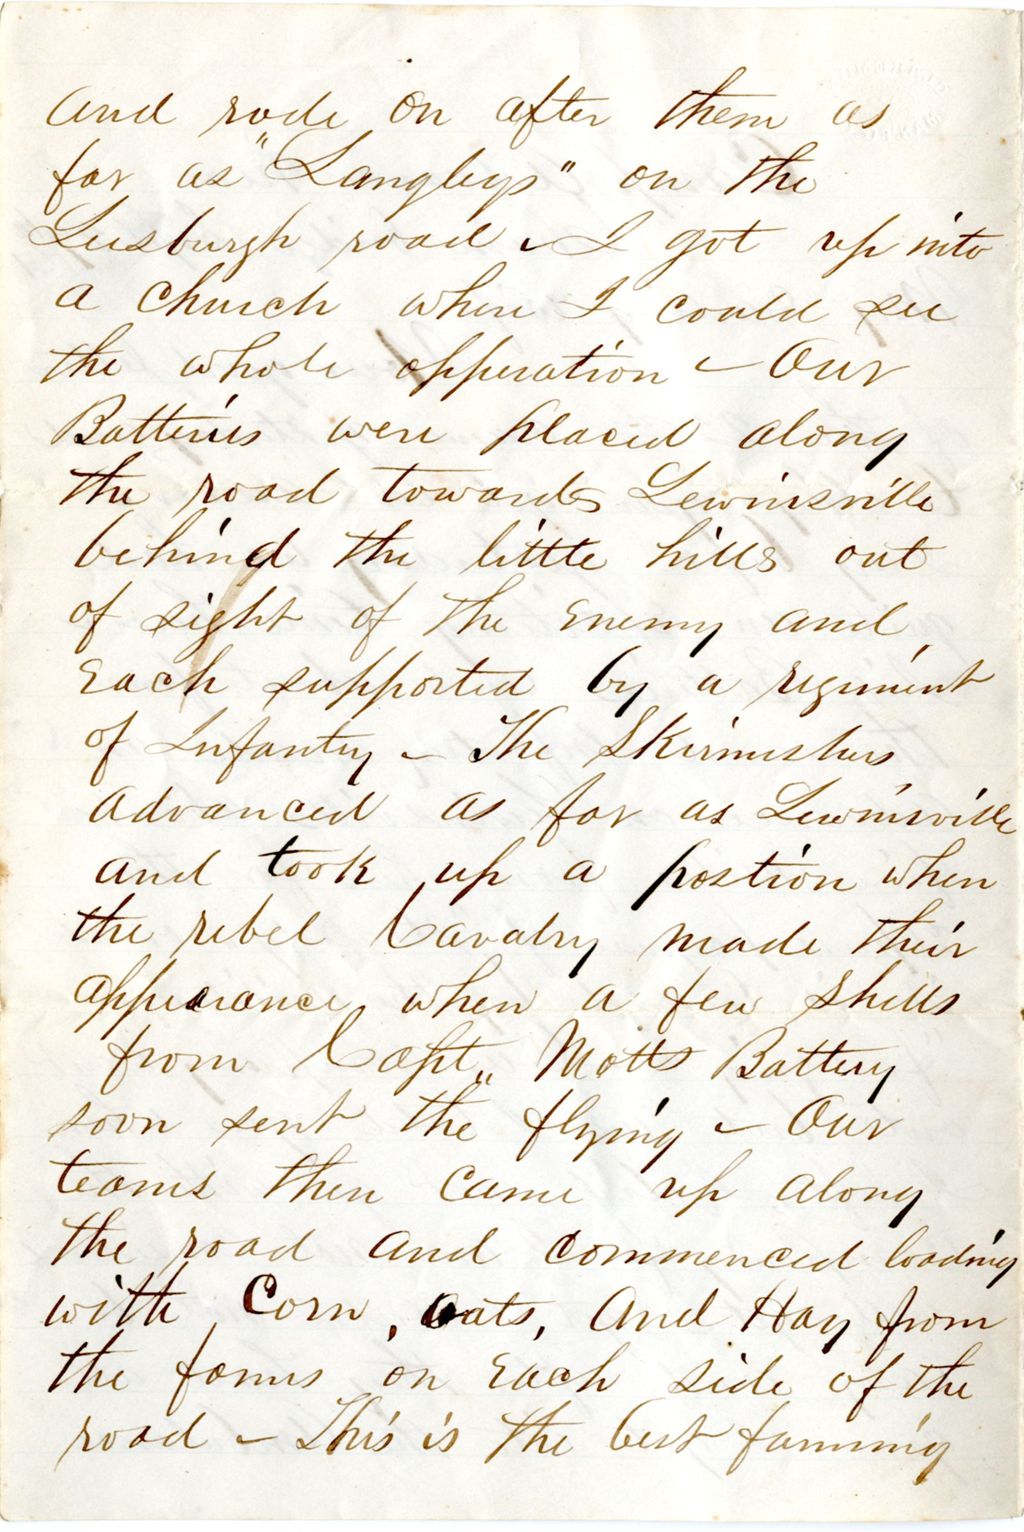 and rode on after them as
far as "Langleys" on the
Leesburgh road - I got up into
a church where I could see
the whole opperation - Our
Batteries were placed along
the road towards Lewinsville
behind the little hills out
of sight of the Enemy and
Each supported by a regiment
of Infantry - The Skirmishers
advanced as far as Lewinsville
and took up a postion when
the rebel Cavalry made their
appearance, when a few Shells
from Capt,, Motts Battery
soon sent the flying - Our
teams then came up along
the road and commenced loading
with Corn, Oats, And Hay from
the farms on Each side of the
road - This is the best farming